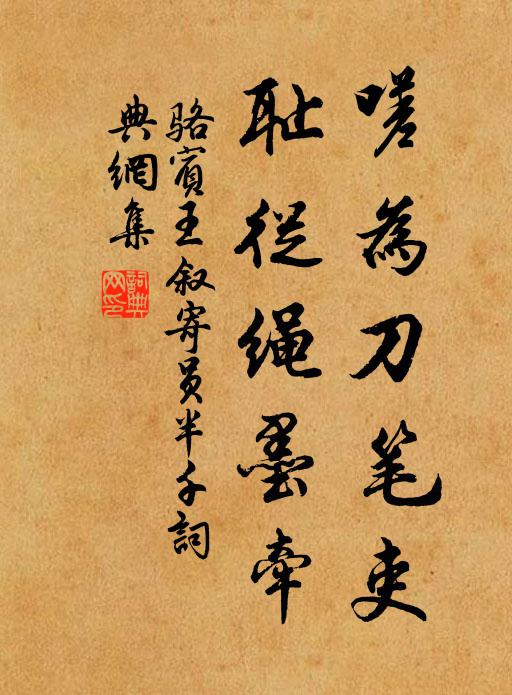 嗟為刀笔吏
耻從绳墨牵
骆賓王叙寄员半千詞
典網集
詞典網印